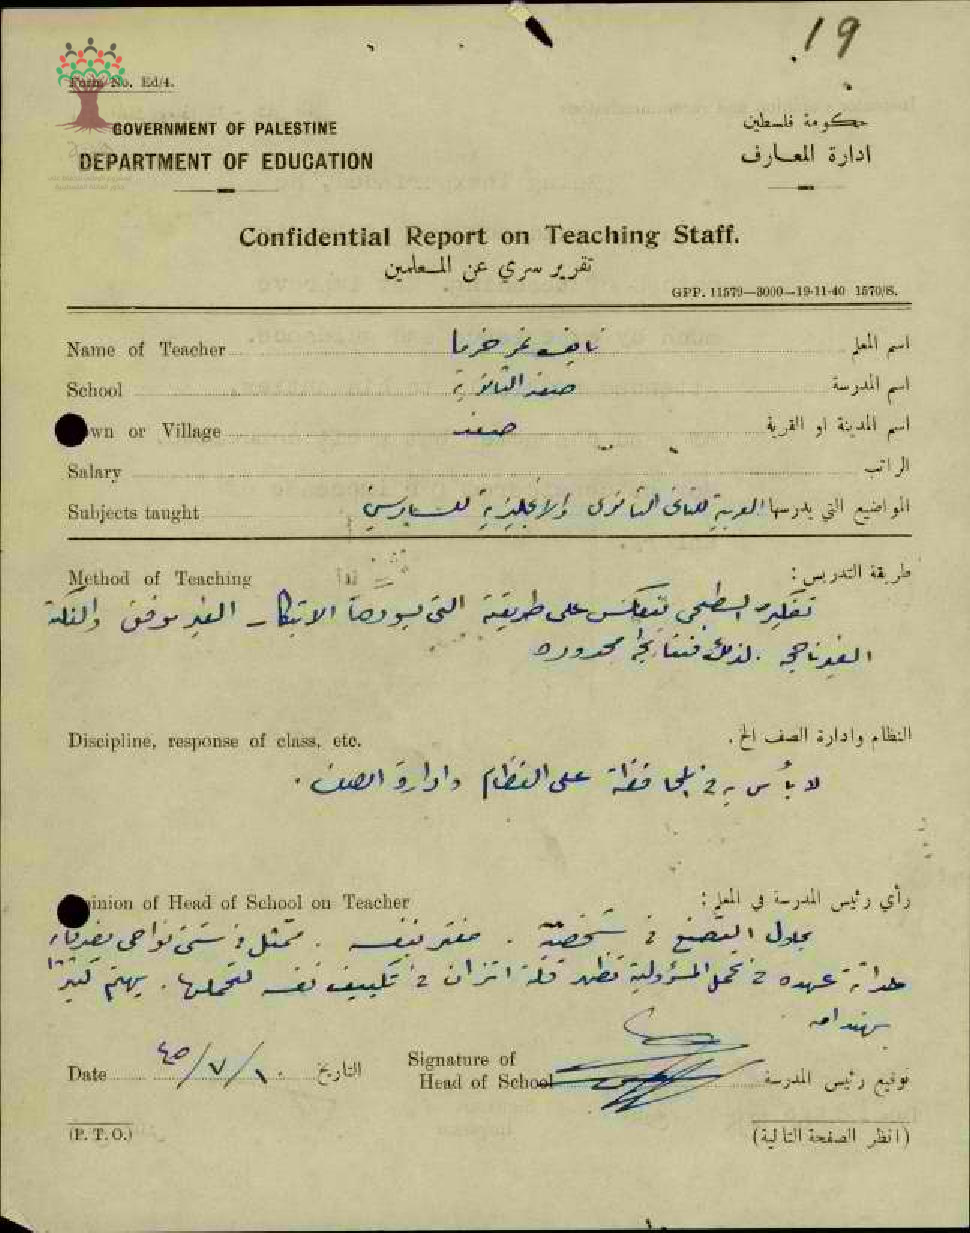 19
Form No. Ed/4.
GOVERNMENT OF PALESTINE
حكومة فلسطين
DEPARTMENT OF EDUCATION
ادارة المعارف
Confidential Report on Teaching Staff.
تقرير سري عن المعلمين
GPP. 11579—3000—19-11-40 1570/S.
Name of Teacher نايف نمر خرما اسم المعلم
School صفد الثانوية اسم المدرسة
own or Village صفد اسم المدينة او القرية
Salary الراتب
Subjects taught العربية للثاني الثانوي والانجليزية للسادس المواضيع التي يدرسها
Method of Teaching طريقة التدريس:
تفكيره سطحي تنعكس على طريقته التي يسودها الابتكار الغير موفق والنكتة
الغير ناجحة . لذلك فنتائجه محدوده
Discipline, response of class, etc. النظام وادارة الصف الخ.
لا بأس به في المحافظة على النظام وادارة الصف .
inion of Head of School on Teacher رأي رئيس المدرسة في المعلم:
يحاول التصنع في شخصيته . مغتر بنفسه . متمثل في شتى نواحي
حداثة عهده في تحمل المسؤولية تظهر قلة اتزان في تكييف نفسه لتحملها . يهتم كثيرا
بهندامه
Date ٤٥/٧/١٠ التاريخ
Signature of
Head of School توقيع رئيس المدرسة
(P. T. O.) (انظر الصفحة التالية)